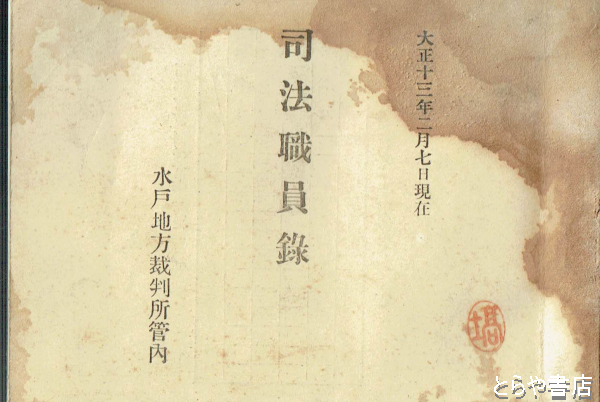 大正十三年二月七日現在
司法職員錄
水戶地方裁判所管內
塙
とらや書店